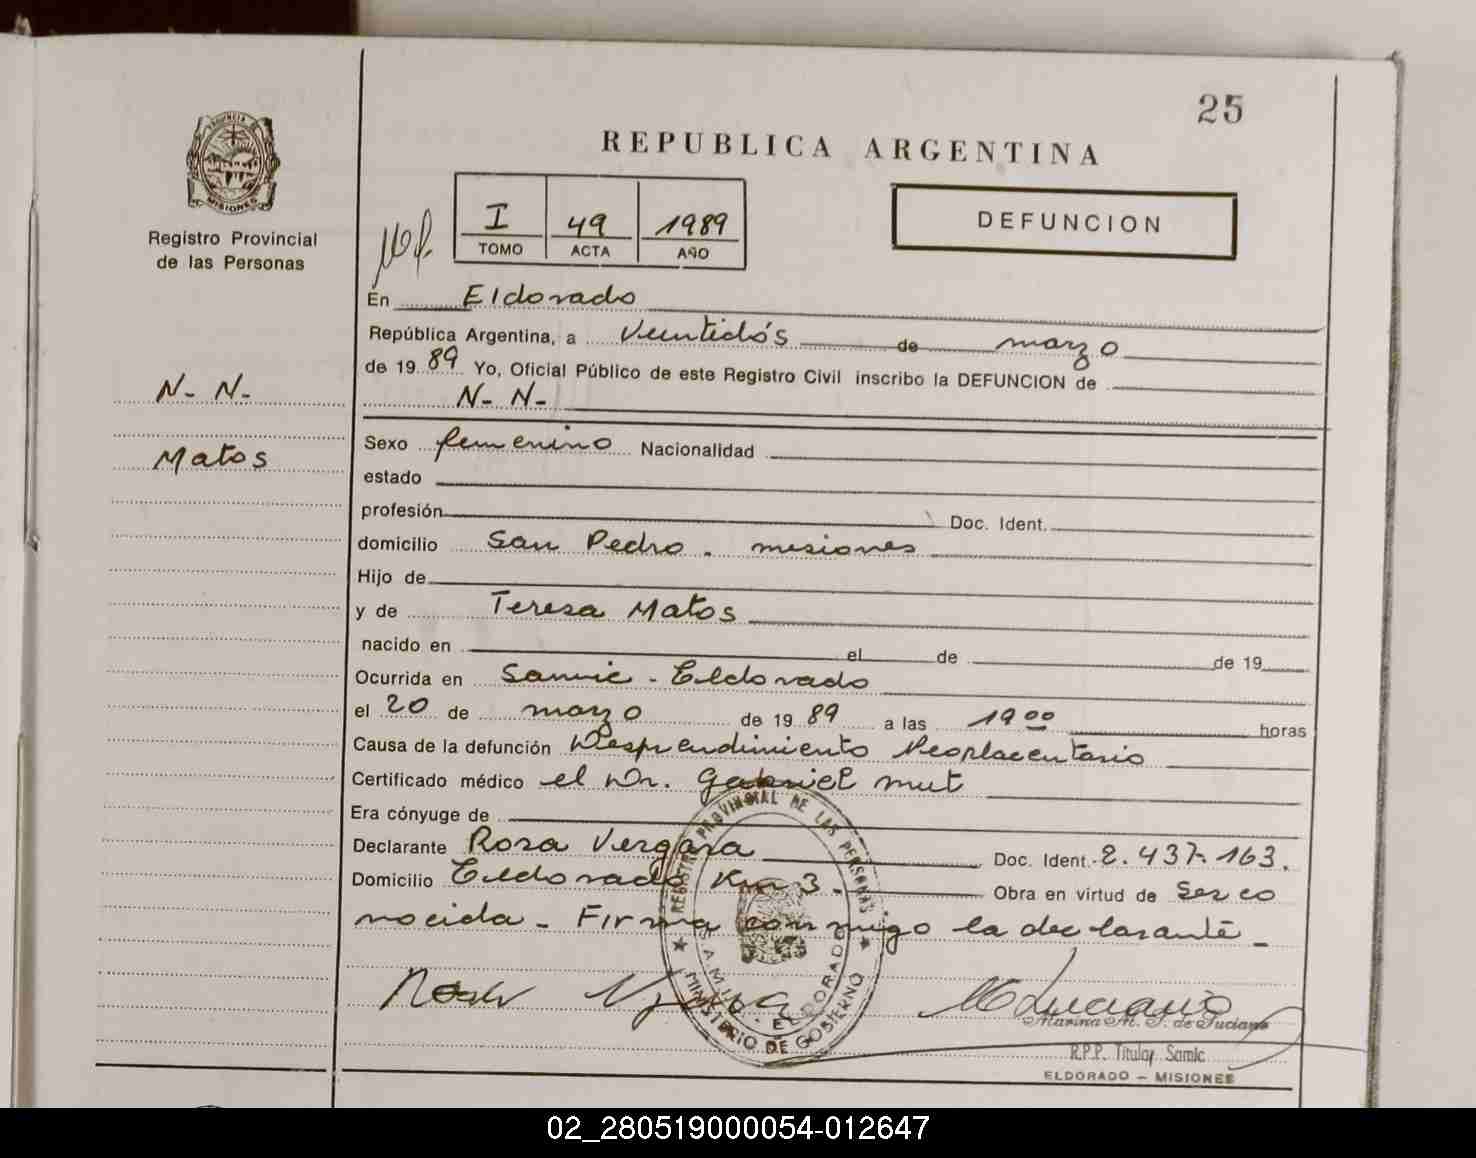 25
REPUBLICA ARGENTINA
PROVINCIA DE
MISIONES
Registro Provincial
de las Personas
I 49 1989
TOMO ACTA AÑO
DEFUNCION
En Eldorado
República Argentina, a Veintidós de marzo
de 19 89 Yo, Oficial Público de este Registro Civil inscribo la DEFUNCION de
N- N-
N- N-
Matos
Sexo femenino Nacionalidad
estado
profesión Doc. Ident.
domicilio San Pedro - misiones
Hijo de
y de Teresa Matos
nacido en el de de 19
Ocurrida en Samic - Eldorado
el 20 de marzo de 19 89 a las 19 00 horas
Causa de la defunción Desprendimiento
Certificado médico el Dr. Gabriel mut
Era cónyuge de
Declarante Rosa Vergara Doc. Ident. 2.437.163.
Domicilio Eldorado Km 3. Obra en virtud de ser co
nocida - Firma conmigo la declarante -
REGISTRO PROVINCIAL DE LAS PERSONAS
S.A.M.I.C. - ELDORADO
MINISTERIO DE GOBIERNO
Marina M. de Luciano
R.P.P. Titular Samic
ELDORADO - MISIONES
02_280519000054-012647